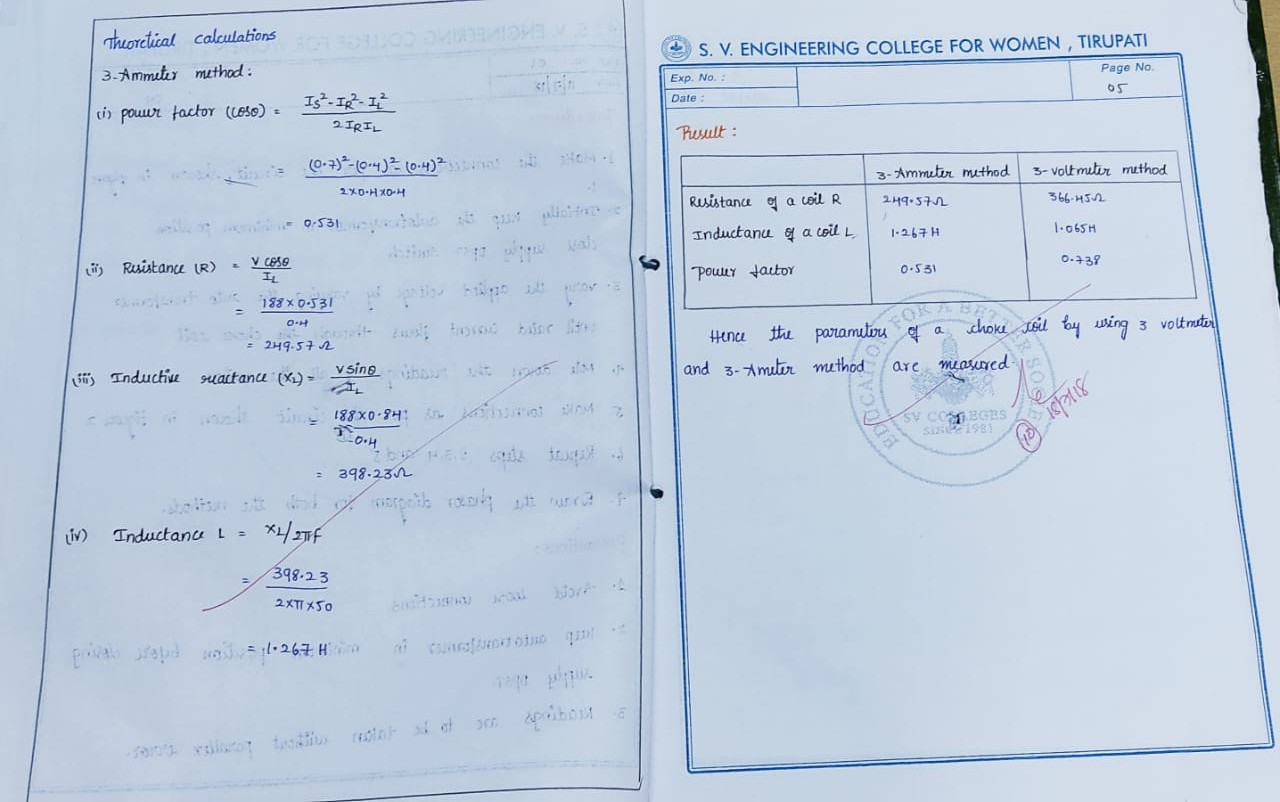 Theoretical calculations
3-Ammeter method:
(i) power factor (cosθ) = (I_S² - I_R² - I_L²) / 2 I_R I_L
= ((0.7)² - (0.4)² - (0.4)²) / 2×0.4×0.4
= 0.531
(ii) Resistance (R) = V cosθ / I_L
= 188 × 0.531 / 0.4
= 249.57 Ω
(iii) Inductive reactance (X_L) = V sinθ / I_L
= 188 × 0.84 / 0.4
= 398.23 Ω
(iv) Inductance L = X_L/2πf
= 398.23 / 2×π×50
= 1.267 H
S. V. ENGINEERING COLLEGE FOR WOMEN , TIRUPATI
Exp. No. :
Date :
Page No.
05
Result :
3-Ammeter method 3-voltmeter method
Resistance of a coil R 249.57Ω 366.45Ω
Inductance of a coil L 1.267 H 1.065H
power factor 0.531 0.738
Hence the parameters of a choke coil by using 3 voltmeter
and 3-Ameter method are measured.
EDUCATION FOR A BETTER SOCIETY
SV COLLEGES
SINCE 1981
10